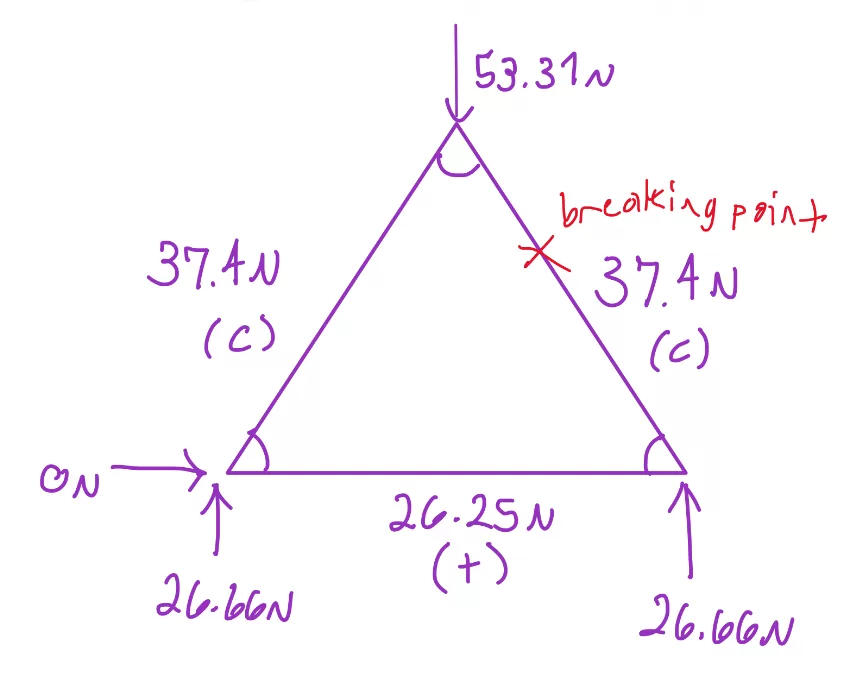 53.31N
breaking point
37.4N
(c)
37.4N
(c)
0N
26.25N
(+)
26.66N
26.66N